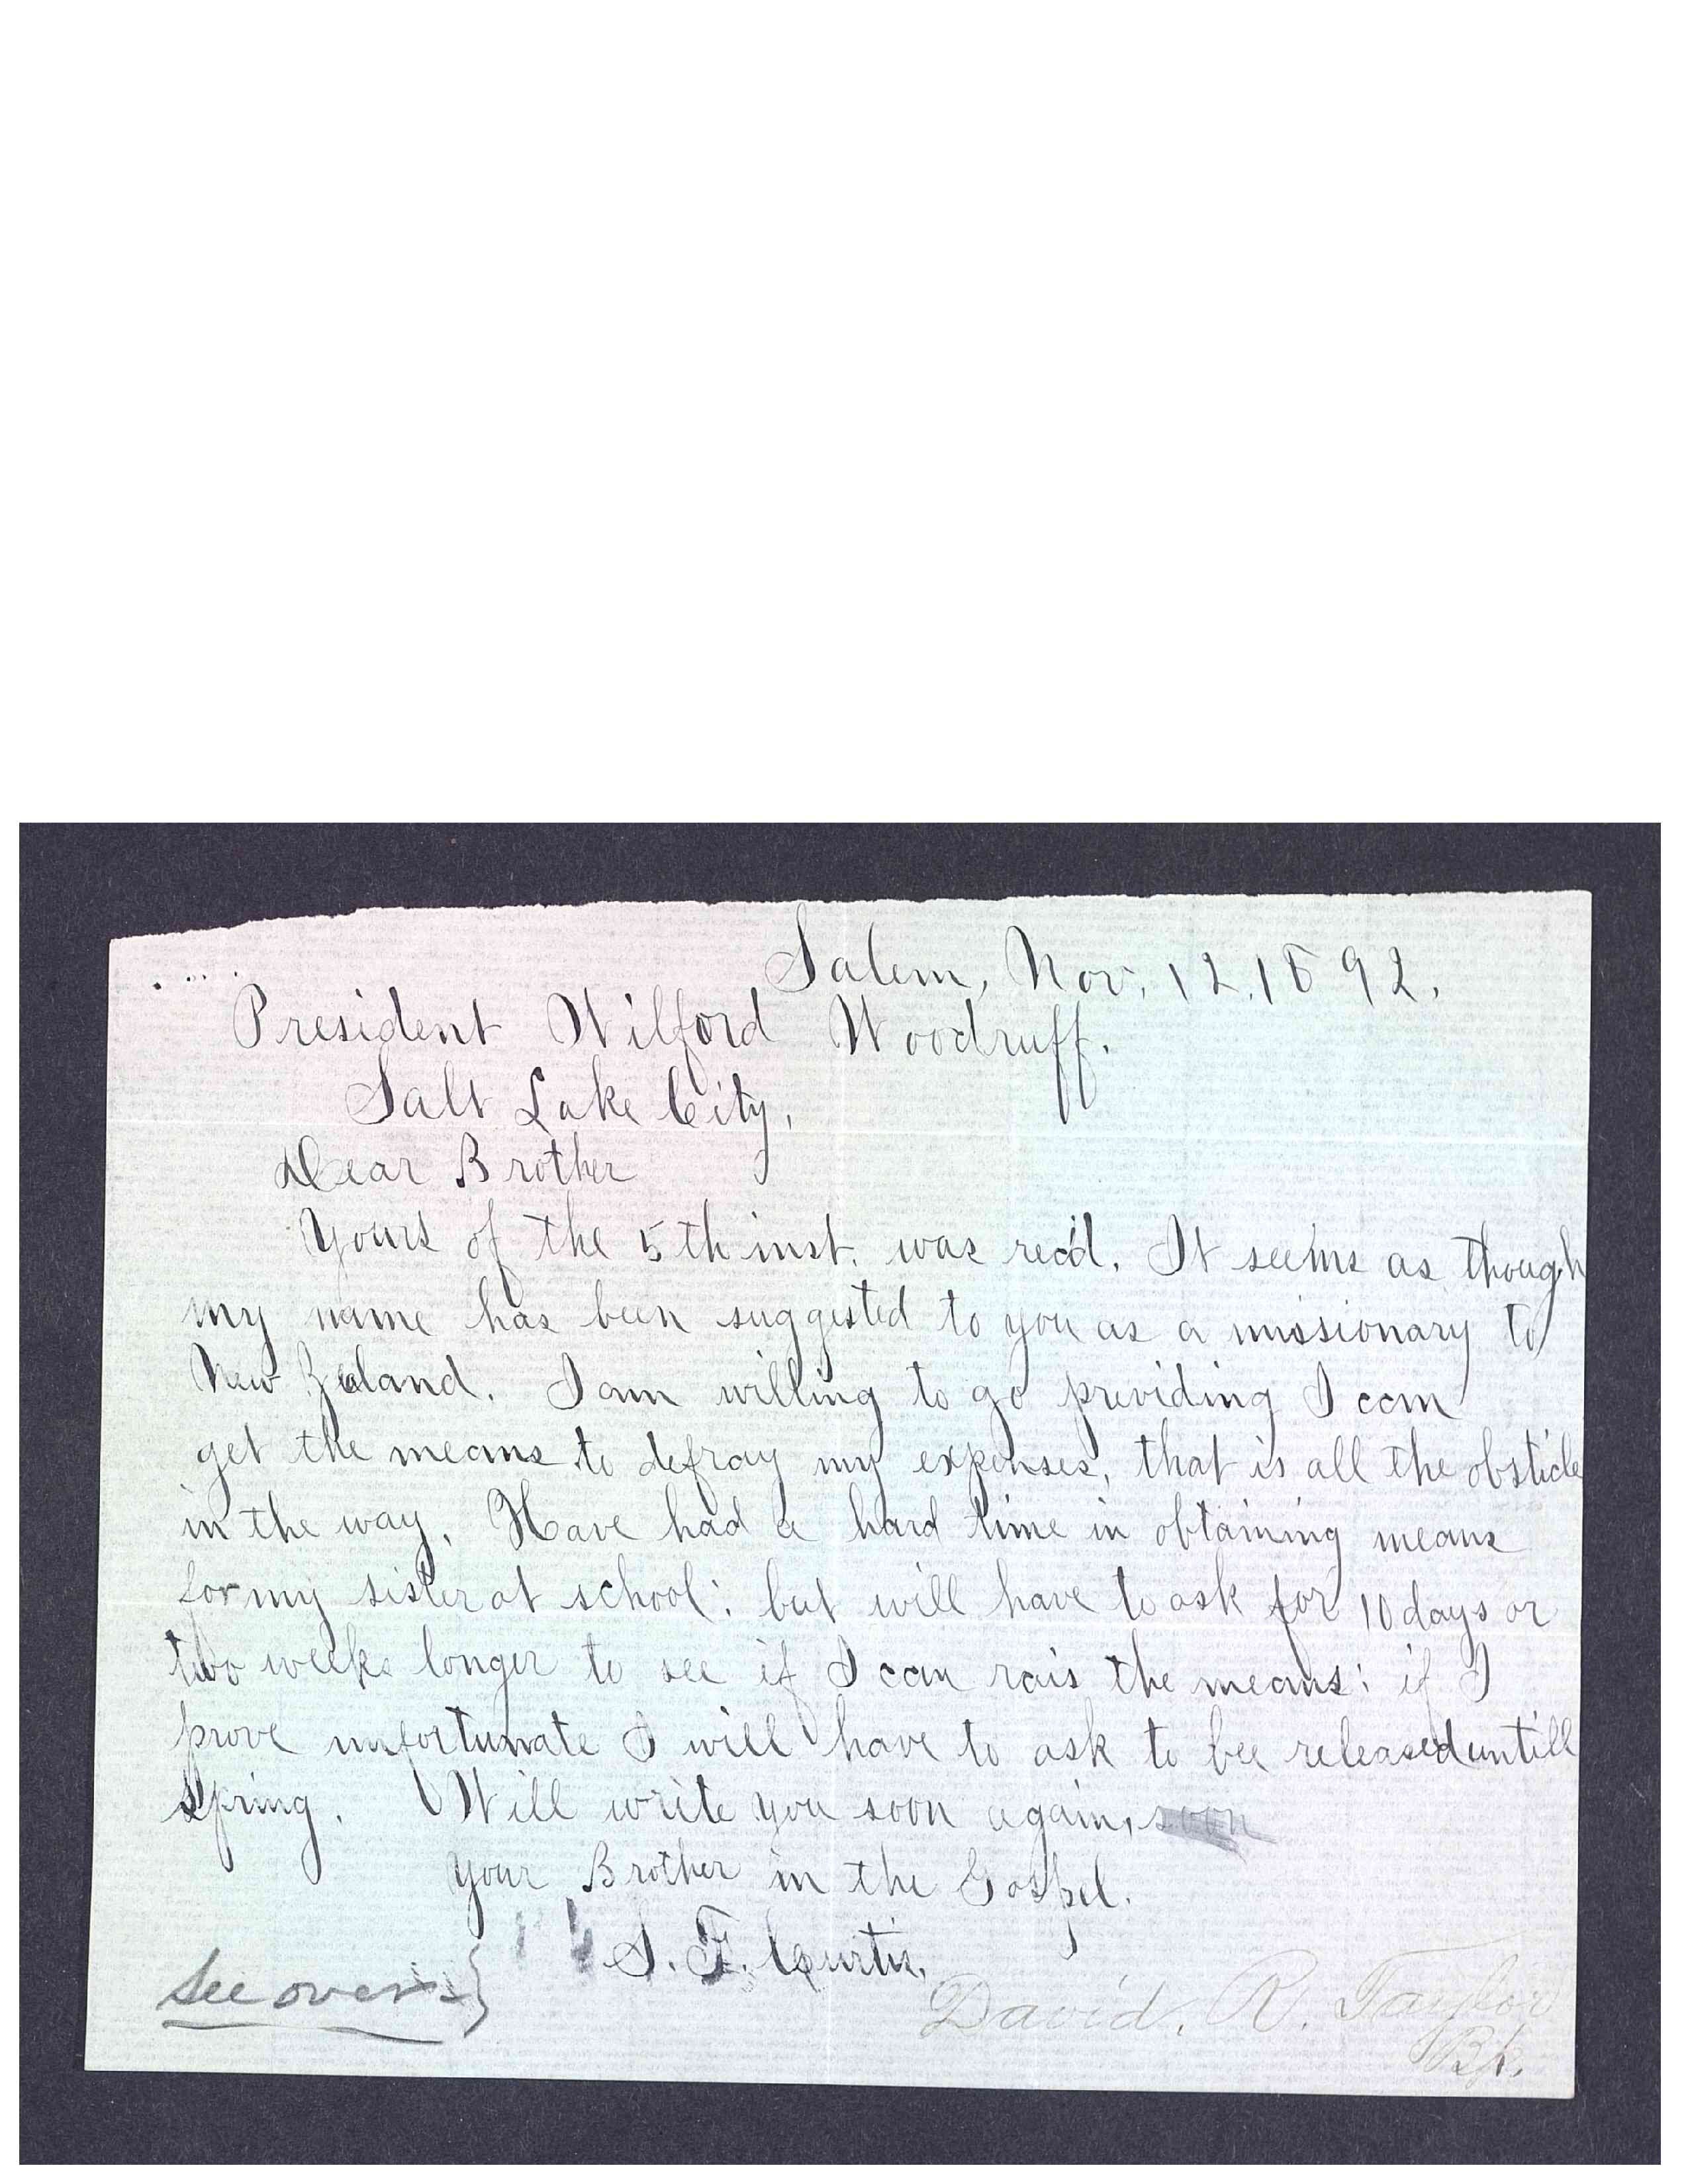 Salem, Nov. 12. 1892.
President Wilford Woodruff.
Salt Lake City,
Dear Brother
Yours of the 5th inst. was rec'd. It seems as though
my name has been suggested to you as a missionary to
New Zealand. I am willing to go providing I can
get the means to defray my expenses, that is all the obsticle
in the way. Have had a hard time in obtaining means
for my sister at school; but will have to ask for 10 days or
two weeks longer to see if I can rais the means; if I
prove unfortunate I will have to ask to bee released untill
spring. Will write you soon again, soon
your Brother in the Gospel.
S. F. Curtis.
See over
David. R. Taylor
Bp.